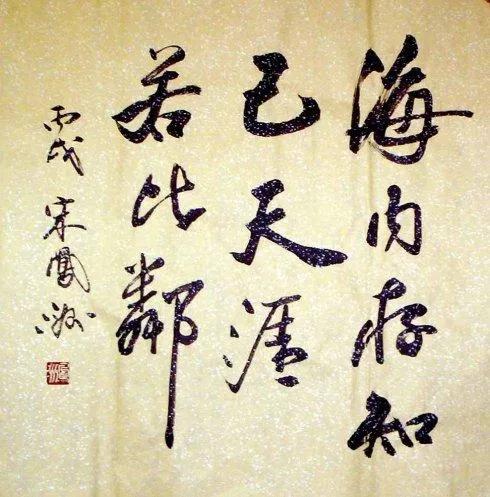 海内存知
己天涯
若比邻
丙戌 宋凤